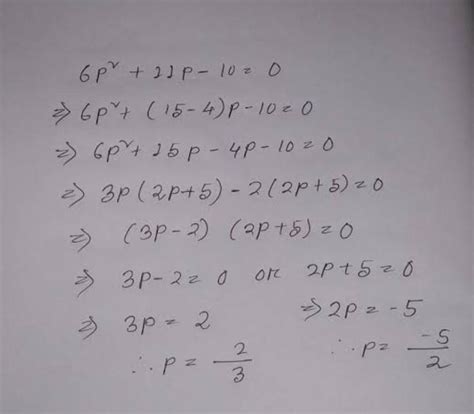 6p² + 11p - 10 = 0
⇒ 6p² + (15-4)p - 10 = 0
⇒ 6p² + 15p - 4p - 10 = 0
⇒ 3p(2p+5) - 2(2p+5) = 0
⇒ (3p-2) (2p+5) = 0
⇒ 3p-2 = 0 or 2p+5 = 0
⇒ 3p = 2 ⇒ 2p = -5
∴ p = 2/3 ∴ p = -5/2